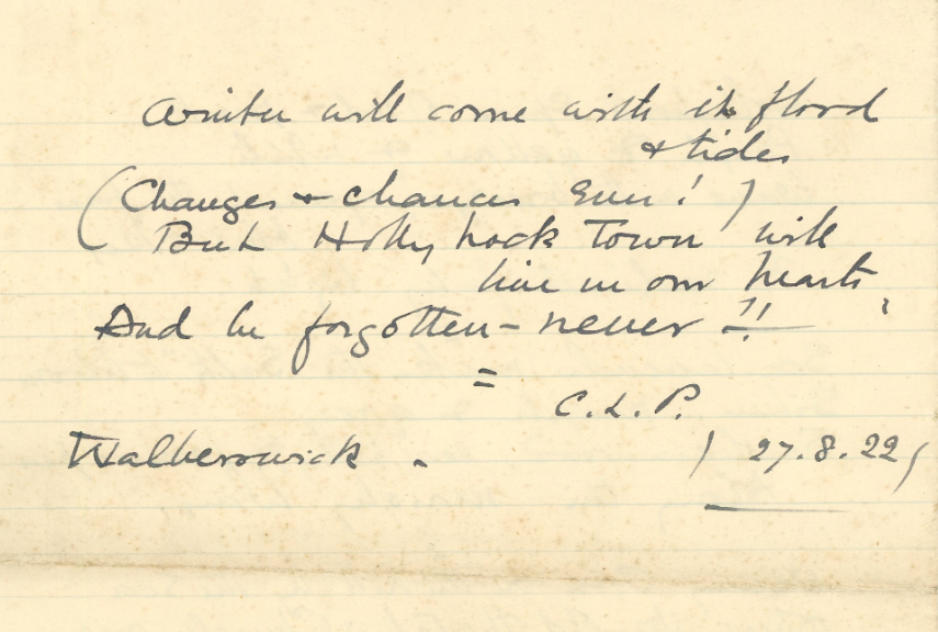 Winter will come with its flood
& tides
(Changes & chances Even! )
But Hollyhock Town will
live in our hearts,
And be forgotten - never !!
=
C. L. P.
Walberswick .
/ 27.8.22 /